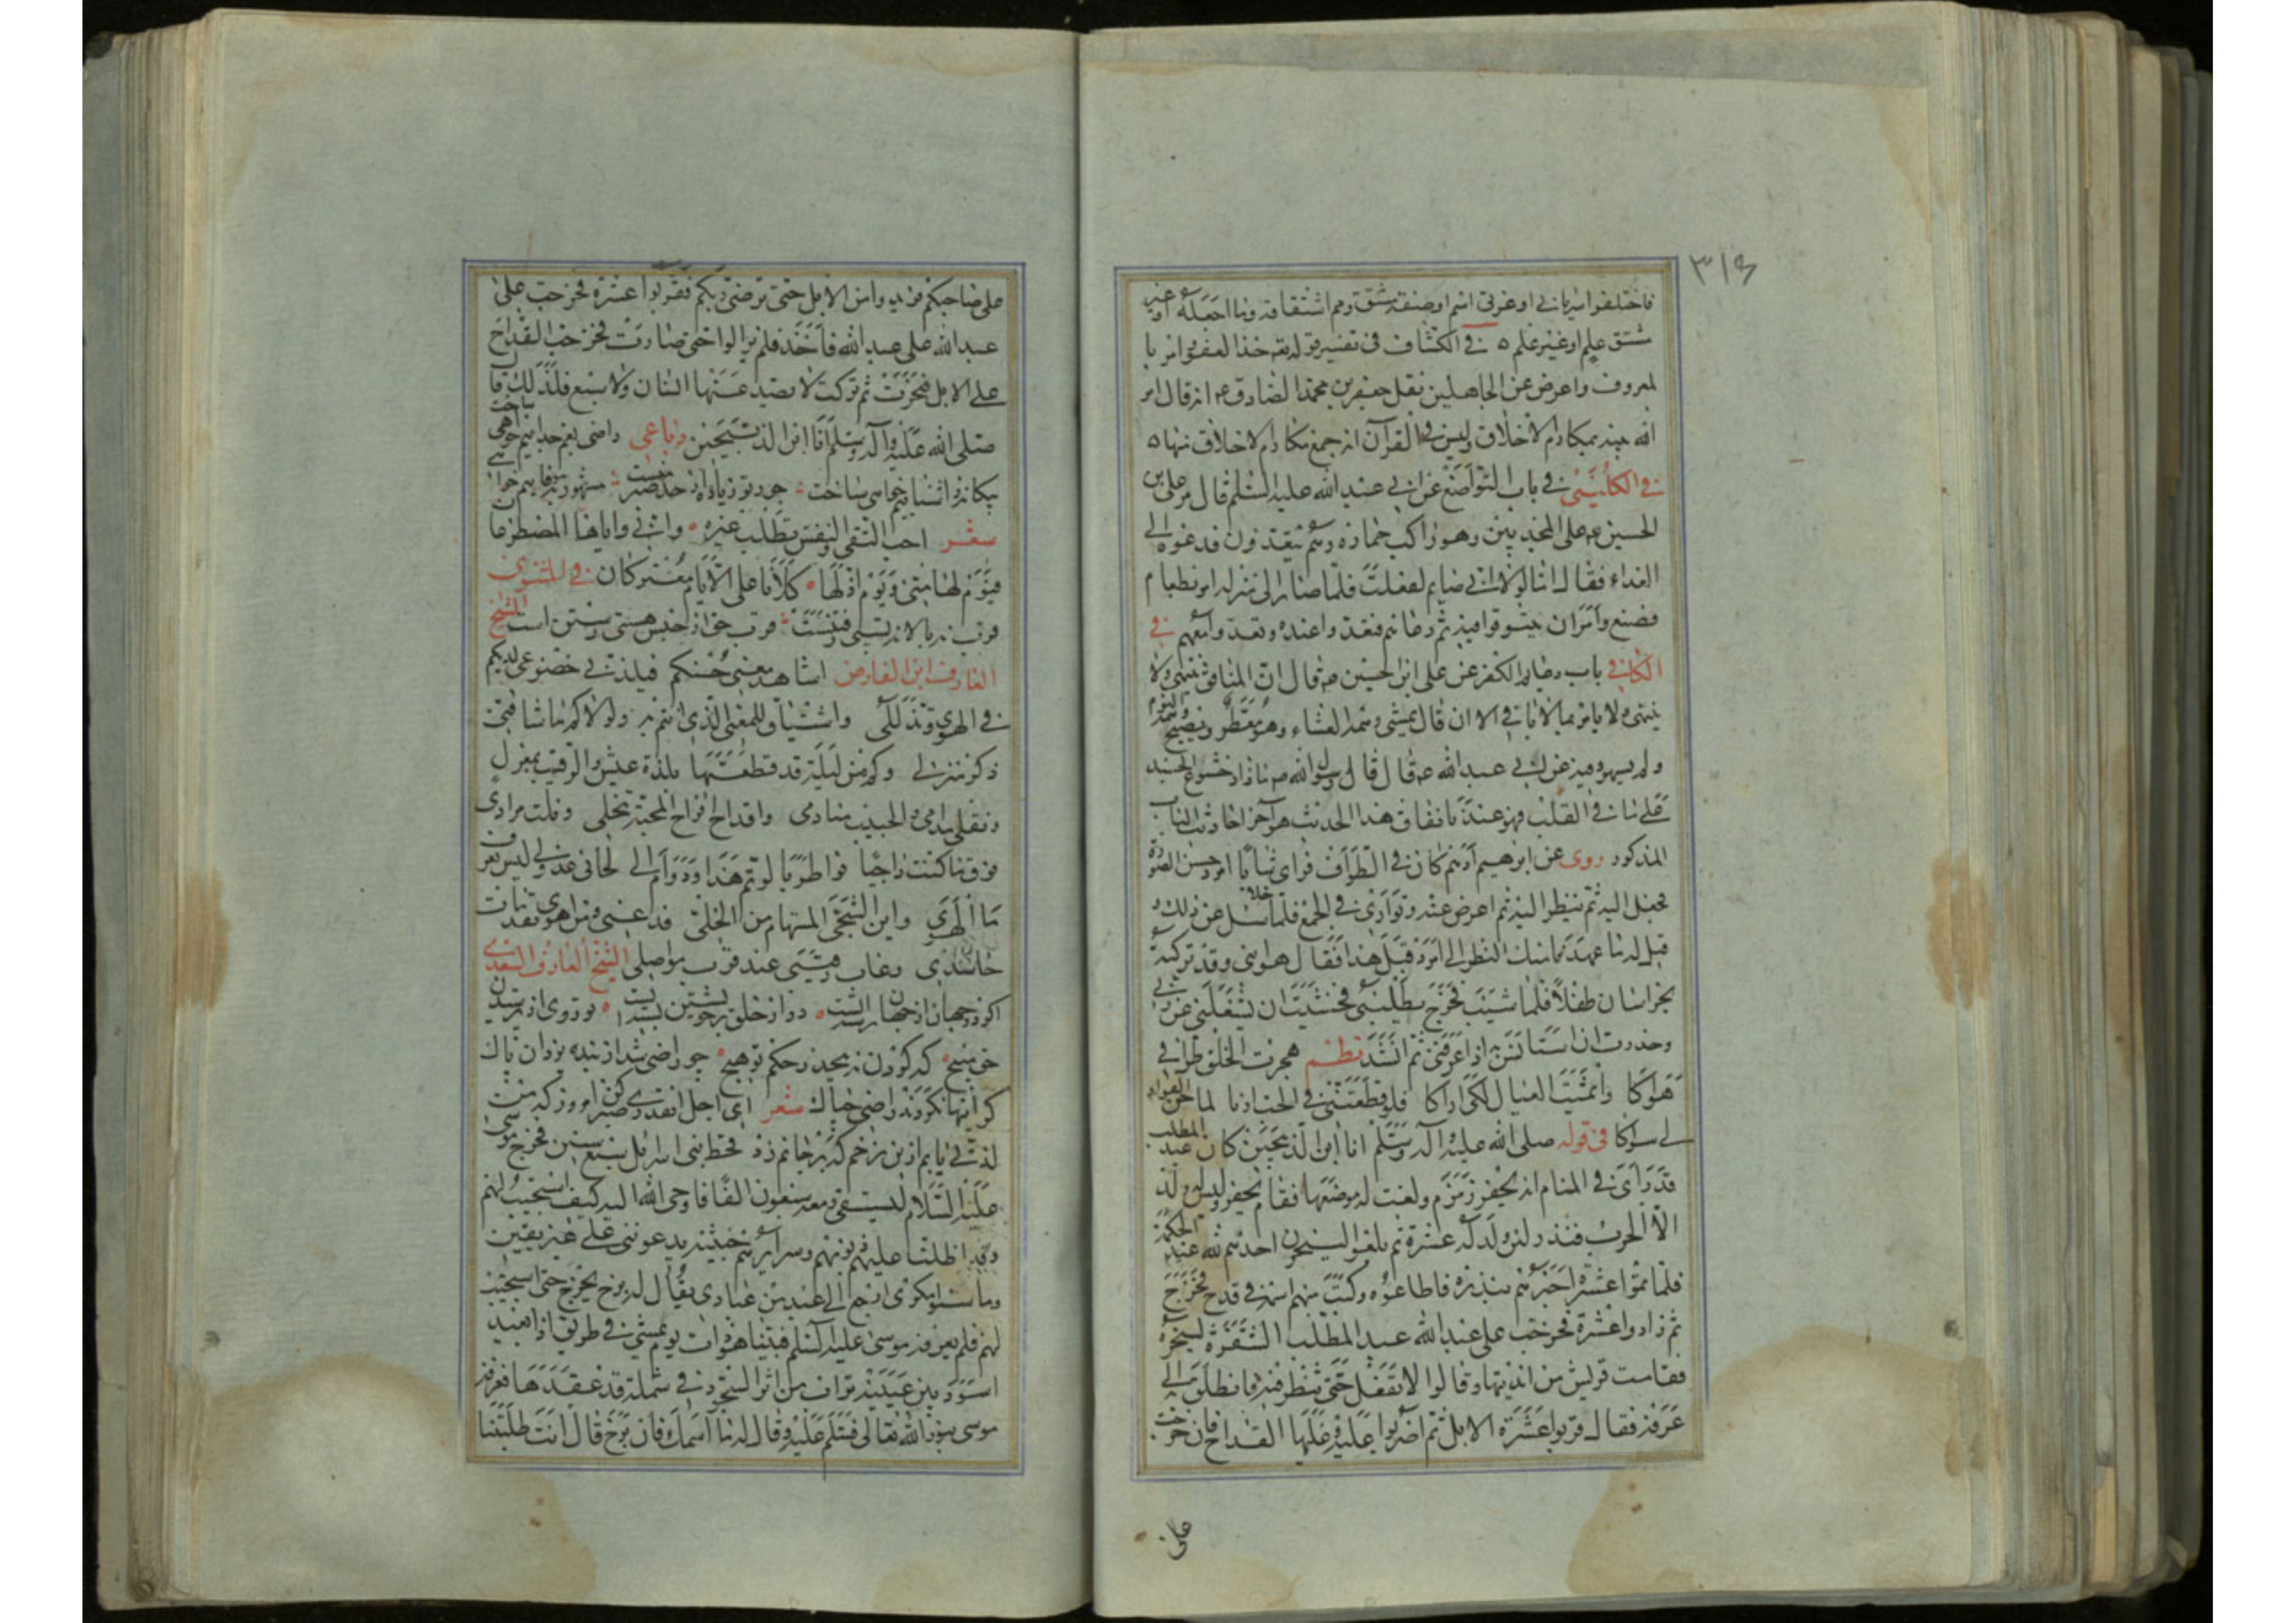 ٣١٤
فاختلفوا سرياني او عربي اسم او صفة مشتق ومم اشتقاقه وما اصله او غير
مشتق علم او غير علم ٥ في الكشاف في تفسير قوله تعالى خذ العفو وامر با
لمعروف واعرض عن الجاهلين نقل جعفر بن محمد الصادق ع انه قال امر
الله نبيه بمكارم الاخلاق وليس في القرآن اية اجمع مكارم الاخلاق منها ٥
في الكليني في باب التواضع عن ابي عبد الله عليه السلم قال مر على بن
الحسين ع على المجذمين وهو راكب حماره وهم يتغذون فدعوه الى
الغداء فقال اما لولا انى صايم لفعلت فلما صار الى منزله امر بطعام
فصنع وامر ان يتنوقوا فيه ثم دعاهم فتغدوا عنده وتغدى معهم في
الكافي باب دعايم الكفر عن على ابن الحسين ع قال ان المنافق ينهى ولا
ينتهى ولا يامر بما لا ياتي الا ان قال يمسى وهمه العشاء وهو مفطر ويصبح وهمه النوم
ولم يسهر وفيه عن ابي عبد الله ع قال قال رسول الله ص ما زاد خشوع الجسد
على ما في القلب فهو عندنا نفاق هذا الحديث هو آخر احاديث الباب
المذكور روى عن ابراهيم ادهم كان في الطواف فراى شابا امرد حسن الصورة
فجعل اليه ثم ينظر اليه ثم اعرض عنه وتوارى في الجمع فلما خلا سئل عن ذلك و
قيل له ما عهدنا منك النظر الى امرد قبل هذا فقال هو ابنى وقد تركته
بخراسان طفلا فلما شبب فخرج يطلبنى فخشيت ان يشغلنى عن ربي
وحذرت ان استانس به اذا عرفنى ثم انشد نظم هجرت الخلق طرا في
هواكا وايتمت العيال لكى اراكا فلو قطعتنى في الحب اربا لما حن الفواد
الى سواكا في قوله صلى الله عليه وآله وسلم انا ابن الذبيحين كان عبد المطلب
قد رآى في المنام انه يحفر زمزم ونعت له موضعها فقام يحفر وليس له ولد
الا الحرث فنذر لئن ولد له عشرة ثم بلغوا لينحرن احدهم لله عند الكعبة
فلما تموا عشرة اخبرهم بنذره فاطاعوه وكتب منهم اسمه في قدح فخرج
ثم زادوا عشرة فخرجت على عبد الله عبد المطلب الشفرة لينحره
فقامت قريش من انديتها وقالوا لا تفعل حتى تنظر فيه فانطلق الى
عرفة فقال قربوا عشرة الابل ثم اضربوا عليه وعليها القداح فان خرجت
على
على صاحبكم فزيدوا من الابل حتى يرضى ربكم فقربوا عشرة فخرجت على
عبد الله على عبد الله فاخذ فلم يزالوا حتى صارت فخرجت القداح
على الابل فنحرت ثم تركت لا يصد عنها انسان ولا سبع فلذلك قال
صلى الله عليه وآله وسلم انا ابن الذبيحين رباعى راضى بغم جدائيم خواهى ساخت
بيكانه ز اشنائيم خواهى ساخت
شعر احب التقى والنفس تطلب غيره واني واياها لمصطرعا
فيوم لها منى ويوم اذلها كلانا على الايام مقتركان في المثنوى
قرب نه بالا نه پستى رفتنست قرب حق از حبس هستى رستن است الشيخ
العارف ابن الفارض اشاهد معنى حسنكم فيلذ لي خضوعى لديكم
في الهوى وتذللى واشتاق للمغنى الذى انتم به ولولاكم ما شاقنى
ذكر منزلي وكم من ليلة قد قطعتها بلذة عيش والرقيب بمعزل
ونقلى مدامى والحبيب منادمى واقداح افراح المحبة تنجلى ونلت مرادى
فوق ما كنت راجيا فواطربا لو تم هذا ودام لي لحانى عذولي ليس يعرف
ما الهوى واين الشجى المستهام من الخلى فدعنى ومن اهوى فقد مات
حاسدى وغاب رقيبى عند قرب مواصلى الشيخ العارف السعدى
اى اجل نقدى صبر كن امروز كه من
لذتى يابم ازين زخم كه برجانم زد قحط بنى اسرائيل سبع سنين فخرج موسى
عليه السلام ليستسقى ومعه سبعون الفا فاوحى الله اليه كيف استجيب لهم
وقد اظلت عليهم ذنوبهم وسرائرهم خبيثة يدعوننى على غير يقين
وما منوا مكرى ارجع الى عبد من عبادى يقال له برخ يخرج حتى استجيب
لهم فلم يعرفه موسى عليه السلم فبينا هو ذات يوم يمشى في طريق اذا بعبد
اسود بين عينيه تراب من اثر السجود في شملة قد عقدها فعرفه
موسى بنور الله تعالى فسلم عليه وقال له ما اسمك فان برخ قال انت طلبتنا